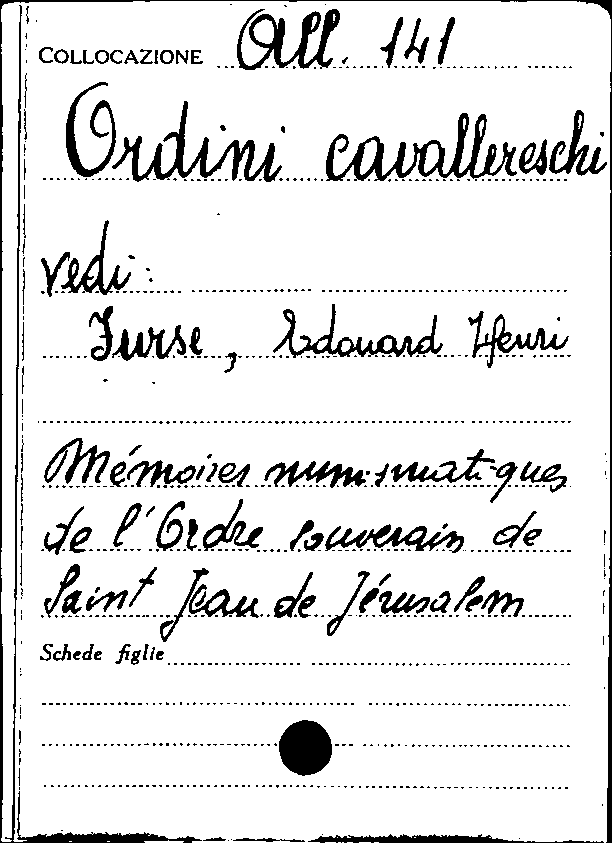 COLLOCAZIONE All. 141
Ordini cavallereschi
vedi:
Furse, Edouard Henri
Mémoires numismatiques
de l'Ordre souverain de
Saint Jean de Jérusalem
Schede figlie